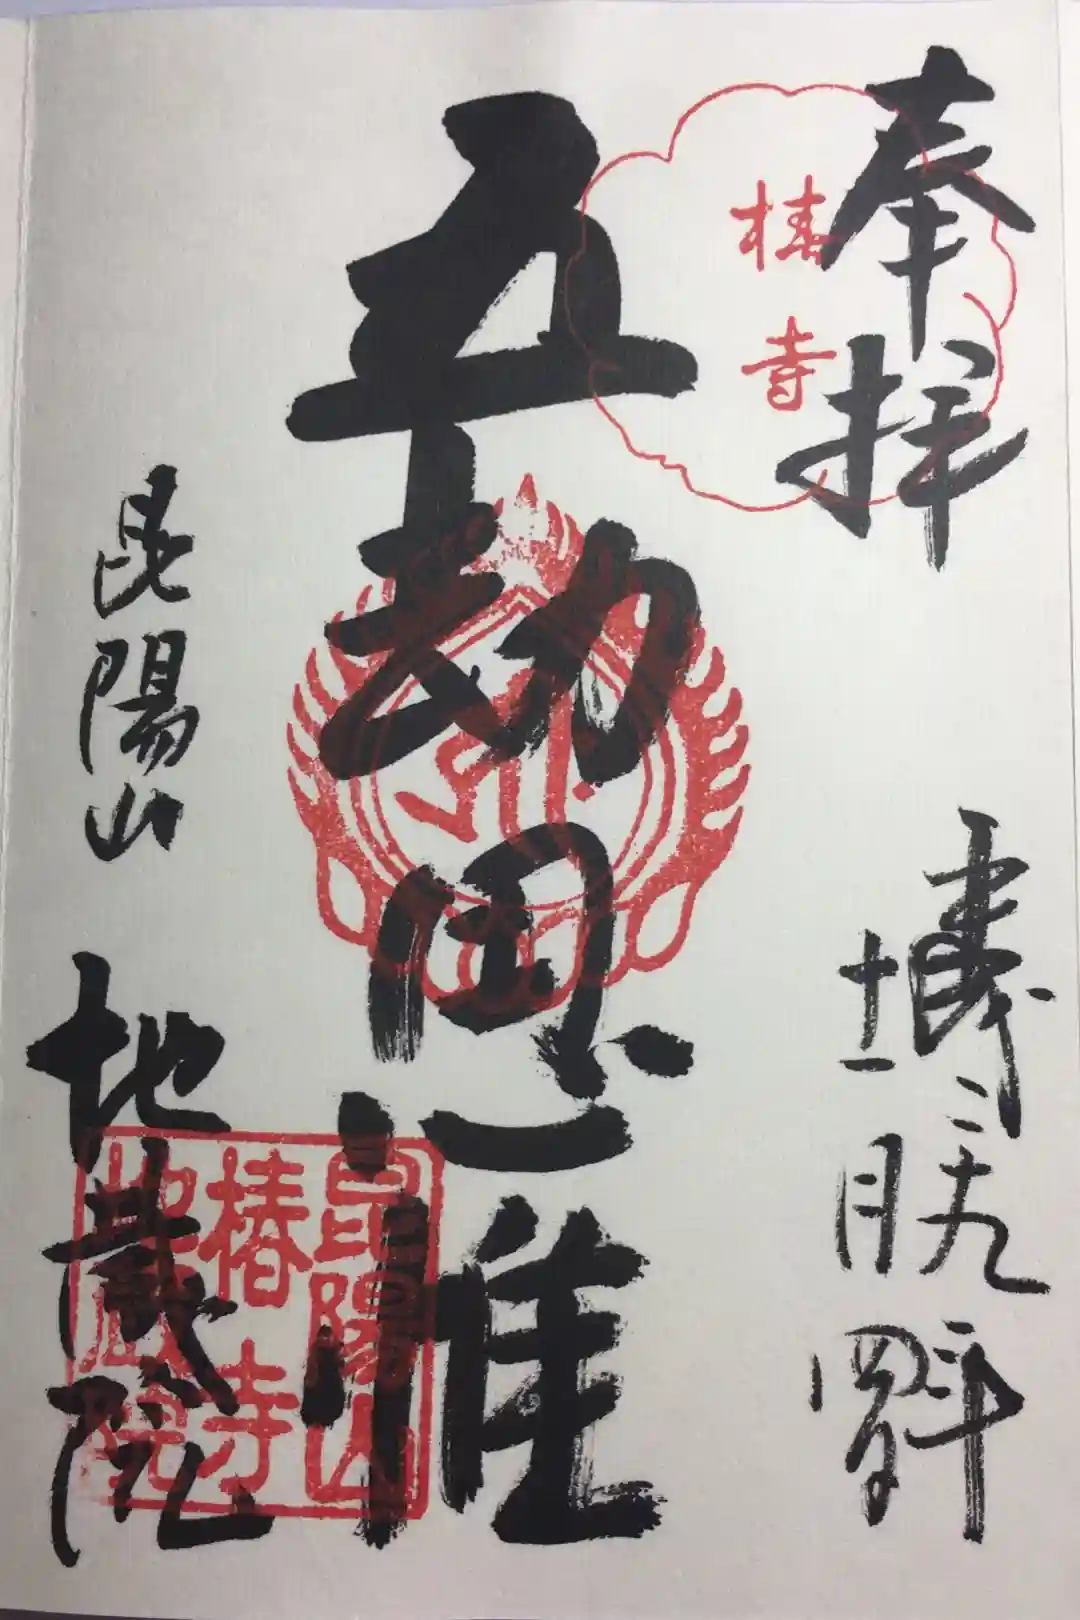 奉拝
椿寺
平成二十九年
十一月四日
五劫思惟
昆陽山 地蔵院
昆陽山
椿寺
地蔵院